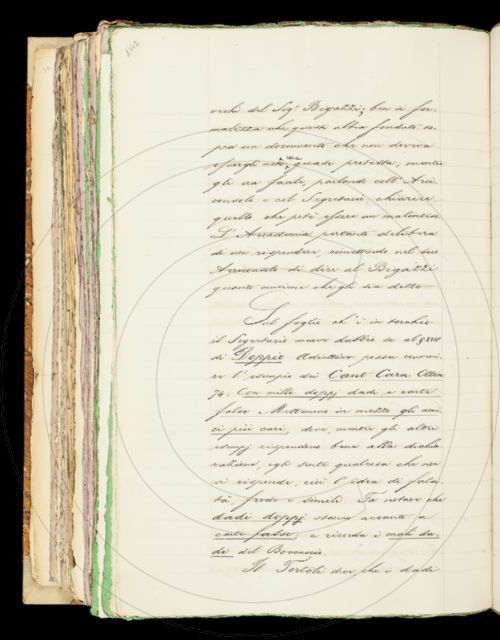 vichi del Sig. Bigazzi; ma si for-
malizza che questi abbia fondato so-
pra un documento che non doveva
quasi protesta; mentre
gli era facile, parlando coll'Arci-
consolo e col Segretario, chiarire
quello che poté essere un malinteso.
L'Accademia pertanto delibera
di non rispondere, rimettendo nel suo
Arciconsolo di dire al Bigazzi
quanto conviene che gli sia detto.
Sul foglio ch'è in torchio
il Segretario muove dubbio se al § XXIII
di Doppio Addiettivo possa conveni-
re l'esempio dei Cant. Carn. Otton.
74: Con mille doppj dadi e carte
false Mettemmo in mezzo gli ami-
ci più cari, dove, mentre gli altri
esempj rispondono bene alla dichia-
razione, egli sente qualcosa che non
vi risponde, cioè l'idea di falsi-
tà, frode e simili. Fa notare che
dadi doppj stanno accanto a
carte false, e ricorda i mali da-
di del Boccaccio.
Il Tortoli dice che i dadi